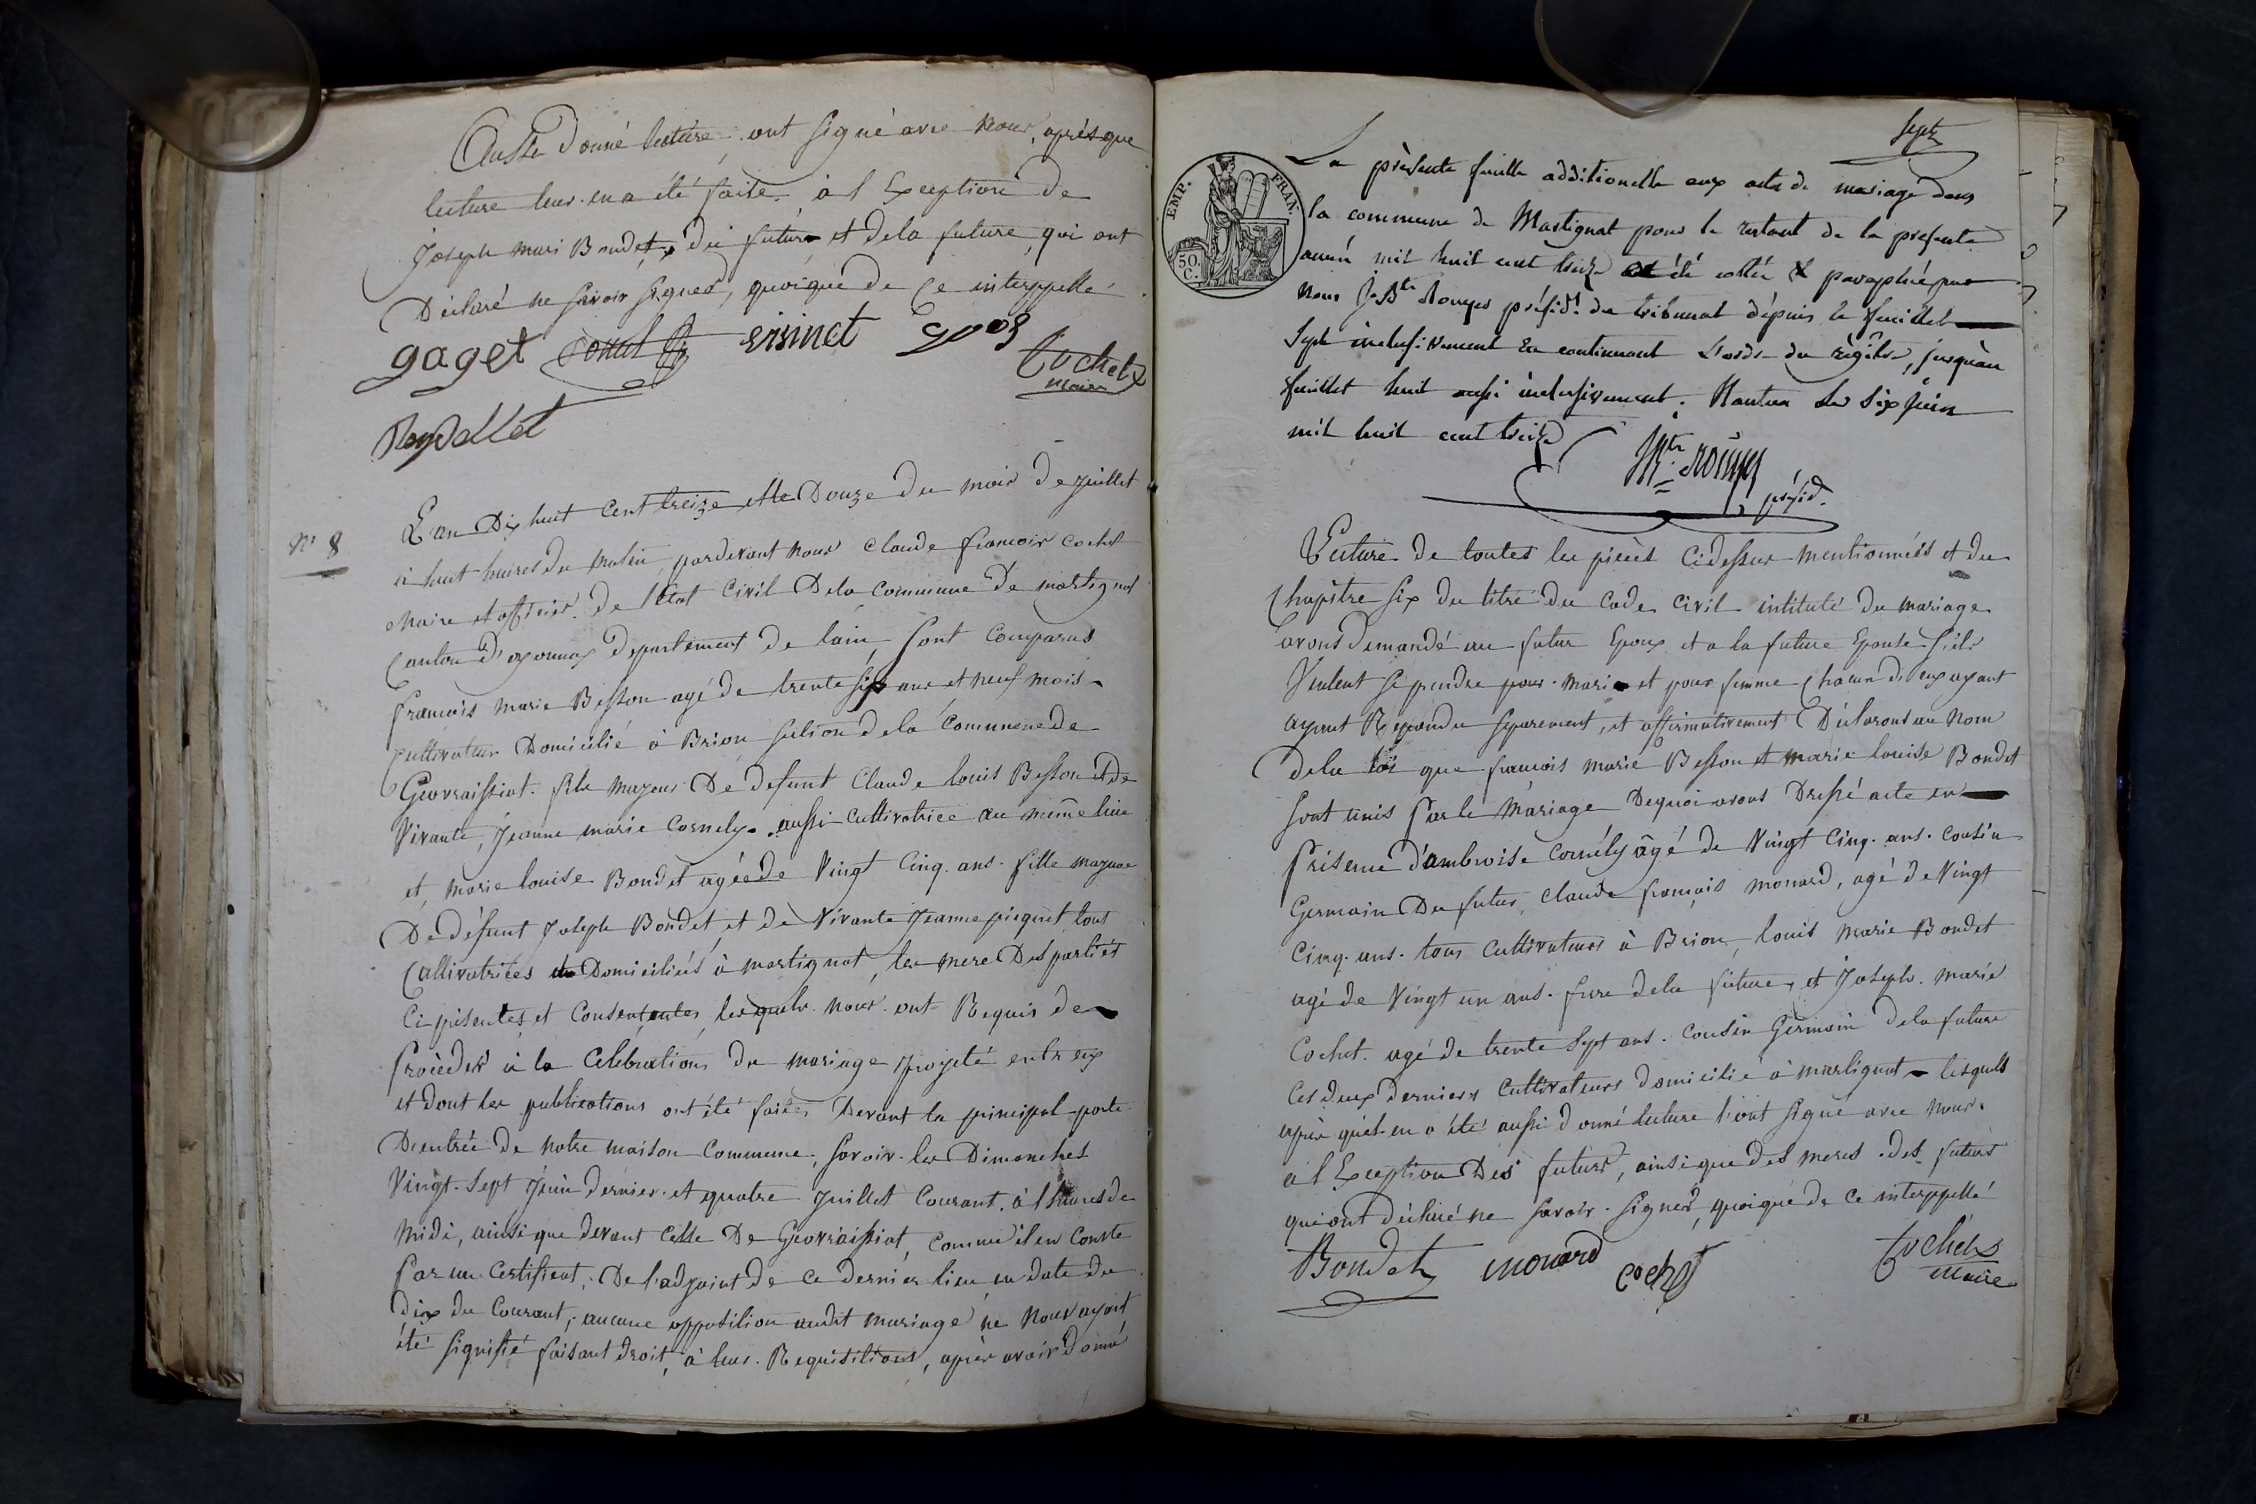 Aussi Donné lecture, ont signé avec Nous, après que
lecture leur en a été faite, à l Exception De
Joseph Marie Bondet, du futur et dela future, qui ont
Déclaré ne savoir signer, quoique de Ce interppellé
gaget evsinet
Cochet
maire
N° 8
L'an Dix huit Cent treize et le Douze du mois De juillet
à huit heures du Matin, pardevant Nous Claude françois cochet
Maire et officier De l'Etat Civil Dela Commune De martignat
Canton d'oyonnax Departement de lain, Sont Comparus
françois Marie Besson agé de trente six ans et neuf mois
Cultivateur Domicilié à Brion section dela Commune de
Geovraissiat. fils mageur De defunt Claude Louis Besson et de
Vivante, Jeanne marie Cornely, aussi Cultivatrice au même lieu
et, Marie louise Bondet agée de Vingt Cinq ans. fille mageure
De défunt Joseph Bondet, et de Vivante Jeanne picquet, tout
Cultivatrices Domiciliés à martignat, les mere Des parties
Ci-présentes, et Consentantes, lesquels Nous ont Requis de
Procèder à la Celebration du mariage projeté entr eux
et dont les publications ont été faites Devant la principal porte
D'entrée de Notre maison Commune, Savoir les Dimanches
Vingt-Sept Juin dernier et quatre Juillet Courant, à l heure de
Midi, ainsi que devant Celle De Geovraissiat, Comme il en Conste
Par un Certificat, De l'adjoint de ce dernier lieu en date du
dix du Courant, aucune opposition audit Mariage ne Nous ayant
été Signifié faisant Droit, à leur Requisitions, après avoir donné
Sept
EMP. FRAN.
50.
C.
La présente feuille additionelle aux actes de mariage dans
la commune de Martignat pour le restant de la presente
année mil huit cent treize a été cottée & paraphée par
Nous J. Bte Rouyer présidt du tribunal dépuis le feuillet
Sept inclusivement En continuant L'ordre du régître, jusqu'au
feuillet huit aussi inclusivement. Nantua le Six Juin
mil huit cent treize
présidt.
Lecture de toutes les pièces Cidessus mentionnées et du
Chapitre Six du titre du Code Civil intitulé du mariage
avons Demandé au futur Epoux et a la future Epouse S'ils
Veulent se prendre pour Mari et pour femme Chacun d'eux ayant
ayant Repondu Separement, et affirmativement Déclarons au Nom
dela loi que françois Marie Besson et Marie louise Bondet
Sont unis Par le Mariage Dequoi avons Dressé acte en
Présence d'ambroise Cornély âgé de Vingt Cinq ans. Cousin
Germain Du futur, Claude françois Monard, agé de Vingt
Cinq ans. tous Cultivateurs à Brion, louis Marie Bondet
agé de Vingt un ans. frere dela future, et Joseph Marie
Cochet agé de trente Sept ans. Cousin Germain dela future
Ces deux derniers Cultivateurs domicilié à Martignat lesquels
après qu'il en a été aussi donné lecture l'ont Signé avec Nous
à l Exception Des futurs, ainsi que des meres des futurs
qui ont déclaré ne Savoir Signer, quoique de Ce interppellé
Bondet monard Cochet Cochet
Maire